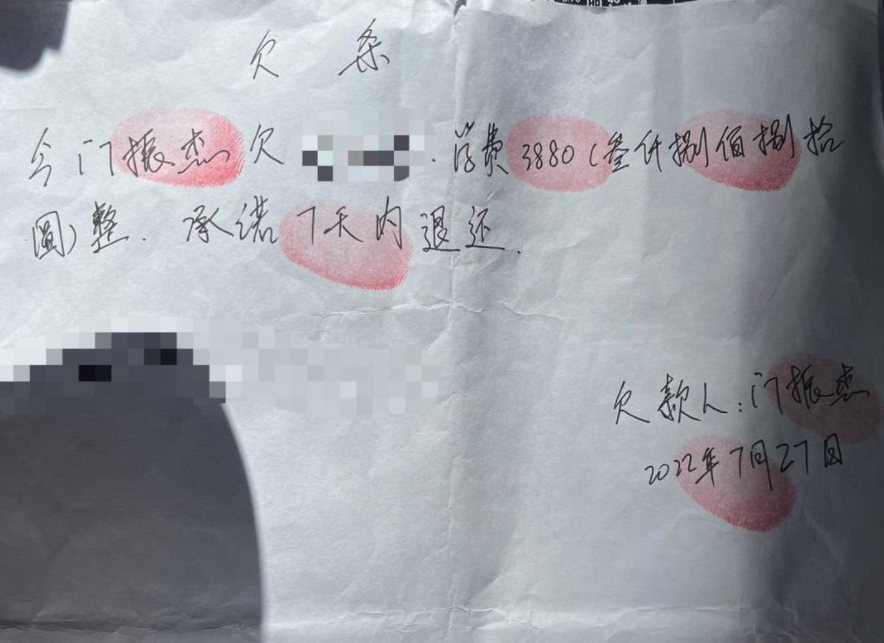 欠条
今门振杰欠 . 学费3880(叁仟捌佰捌拾
圆)整. 承诺7天内退还.
欠款人:门振杰
2022年7月27日